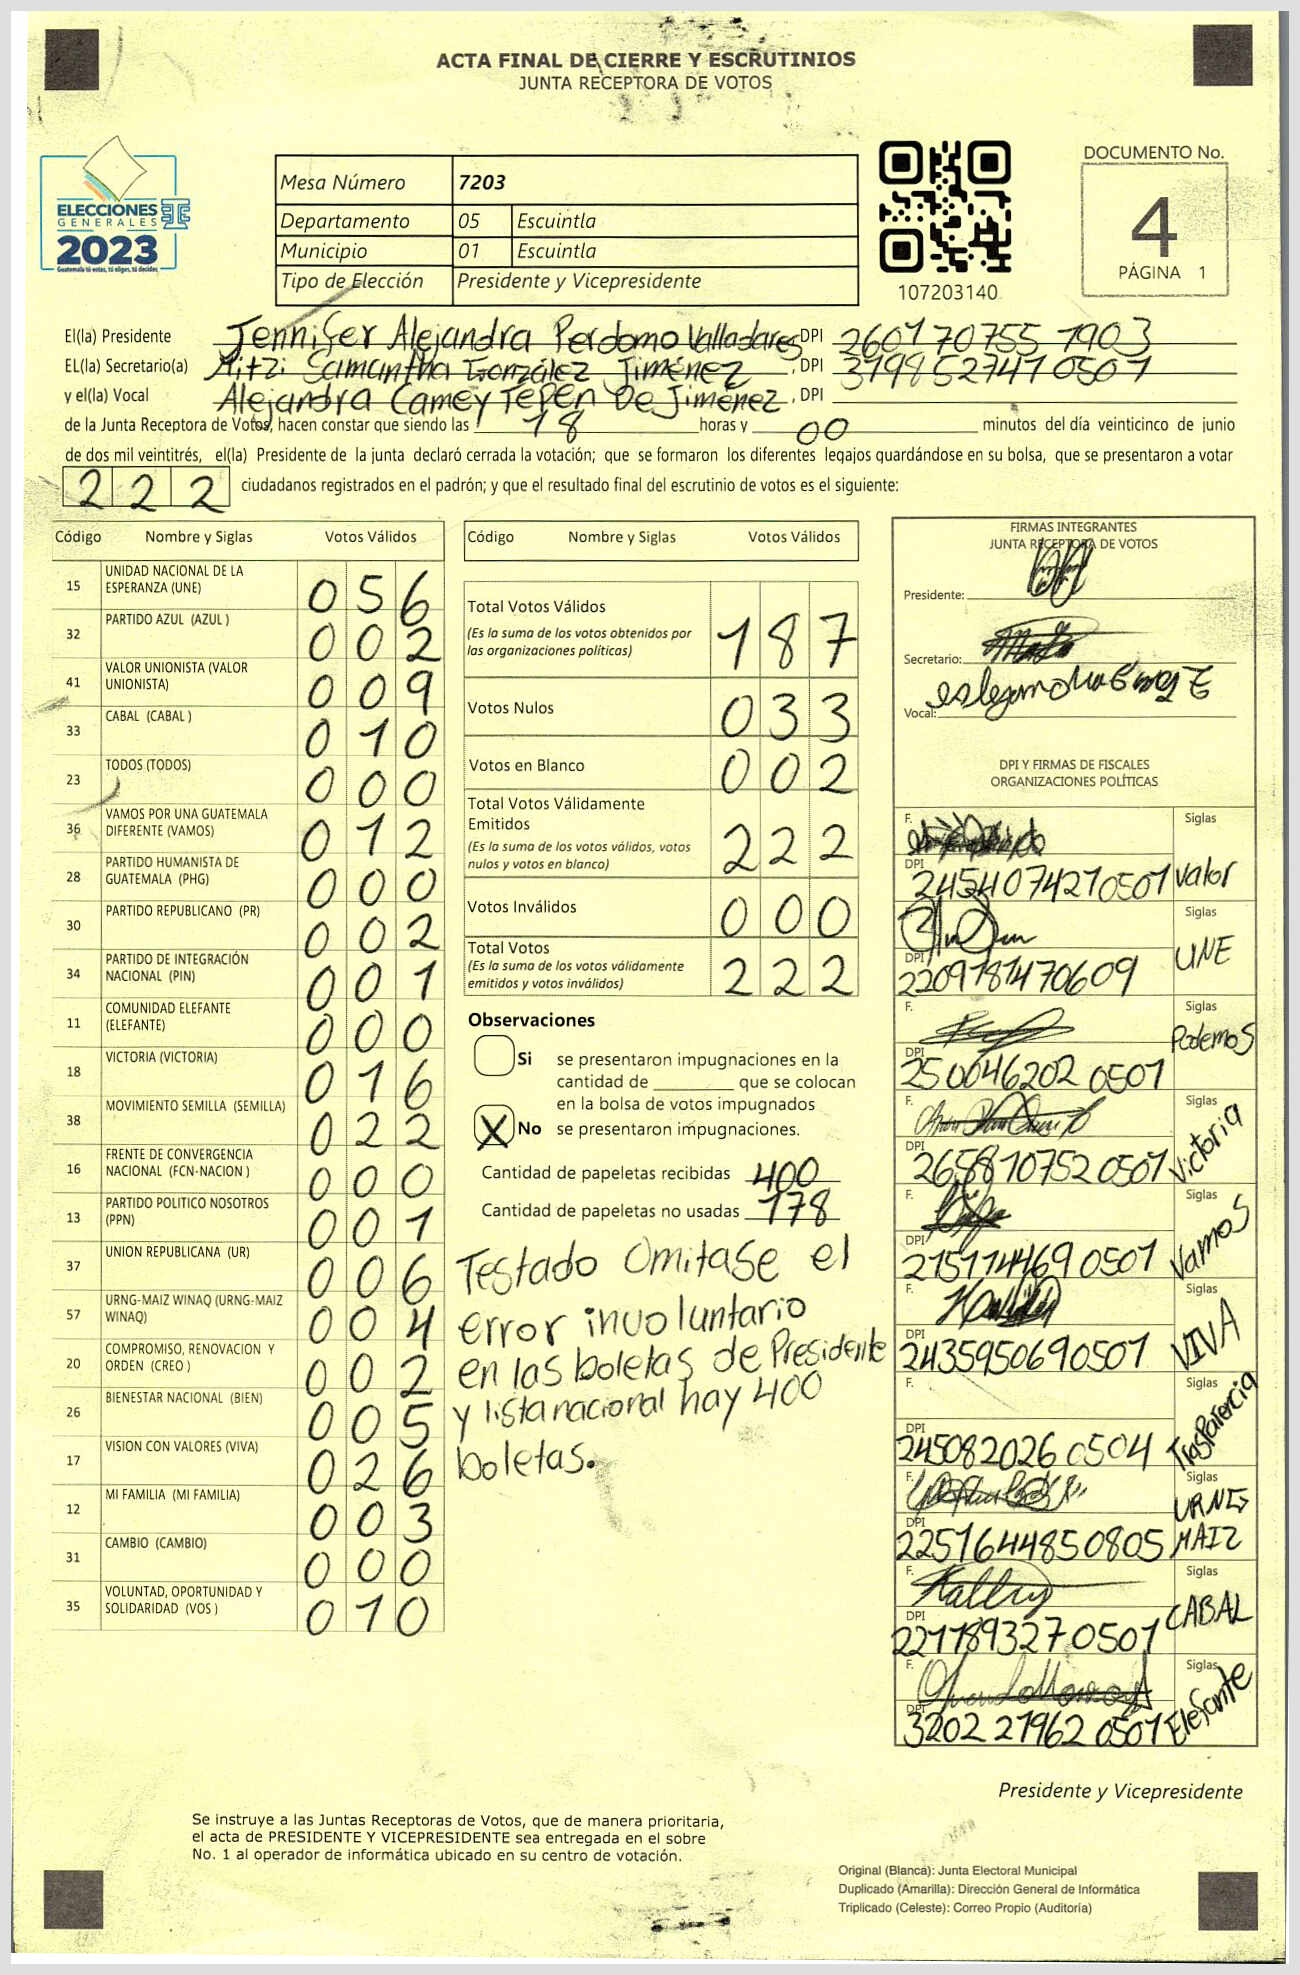 ACTA FINAL DE CIERRE Y ESCRUTINIOS
JUNTA RECEPTORA DE VOTOS
ELECCIONES
GENERALES
2023
Guatemala tú votas, tú eliges, tú decides
Mesa Número 7203
Departamento 05 Escuintla
Municipio 01 Escuintla
Tipo de Elección Presidente y Vicepresidente
107203140
DOCUMENTO No.
4
PÁGINA 1
El(la) Presidente Jennifer Alejandra Perdomo Valladares DPI 2601707551903
EL(la) Secretario(a) Mitzi Samantha González Jiménez, DPI 3198527410501
y el(la) Vocal Alejandra Camey Tepen De Jiménez, DPI
de la Junta Receptora de Votos, hacen constar que siendo las 18 horas y 00 minutos del día veinticinco de junio
de dos mil veintitrés, el(la) Presidente de la junta declaró cerrada la votación; que se formaron los diferentes legajos guardándose en su bolsa, que se presentaron a votar
222 ciudadanos registrados en el padrón; y que el resultado final del escrutinio de votos es el siguiente:
Código Nombre y Siglas Votos Válidos
15 UNIDAD NACIONAL DE LA ESPERANZA (UNE) 056
32 PARTIDO AZUL (AZUL ) 002
41 VALOR UNIONISTA (VALOR UNIONISTA) 009
33 CABAL (CABAL ) 010
23 TODOS (TODOS) 000
36 VAMOS POR UNA GUATEMALA DIFERENTE (VAMOS) 012
28 PARTIDO HUMANISTA DE GUATEMALA (PHG) 000
30 PARTIDO REPUBLICANO (PR) 002
34 PARTIDO DE INTEGRACIÓN NACIONAL (PIN) 001
11 COMUNIDAD ELEFANTE (ELEFANTE) 000
18 VICTORIA (VICTORIA) 016
38 MOVIMIENTO SEMILLA (SEMILLA) 022
16 FRENTE DE CONVERGENCIA NACIONAL (FCN-NACION ) 000
13 PARTIDO POLITICO NOSOTROS (PPN) 001
37 UNION REPUBLICANA (UR) 006
57 URNG-MAIZ WINAQ (URNG-MAIZ WINAQ) 004
20 COMPROMISO, RENOVACION Y ORDEN (CREO ) 002
26 BIENESTAR NACIONAL (BIEN) 005
17 VISION CON VALORES (VIVA) 026
12 MI FAMILIA (MI FAMILIA) 003
31 CAMBIO (CAMBIO) 000
35 VOLUNTAD, OPORTUNIDAD Y SOLIDARIDAD (VOS ) 010
Código Nombre y Siglas Votos Válidos
Total Votos Válidos 187
(Es la suma de los votos obtenidos por las organizaciones políticas)
Votos Nulos 033
Votos en Blanco 002
Total Votos Válidamente Emitidos 222
(Es la suma de los votos válidos, votos nulos y votos en blanco)
Votos Inválidos 000
Total Votos 222
(Es la suma de los votos válidamente emitidos y votos inválidos)
Observaciones
Si se presentaron impugnaciones en la
cantidad de ________ que se colocan
en la bolsa de votos impugnados
X No se presentaron impugnaciones.
Cantidad de papeletas recibidas 400
Cantidad de papeletas no usadas 178
Testado Omitase el
error involuntario
en las boletas de Presidente
y lista nacional hay 400
boletas.
FIRMAS INTEGRANTES
JUNTA RECEPTORA DE VOTOS
Presidente:
Secretario:
Vocal:
DPI Y FIRMAS DE FISCALES
ORGANIZACIONES POLÍTICAS
F. Siglas
DPI 2454074270501 Valor
F. Siglas
DPI 2209781470609 UNE
F. Siglas
DPI 2500462020501 Podemos
F. Siglas
DPI 2658107520501 Victoria
F. Siglas
DPI 2151144690501 Vamos
F. Siglas
DPI 2435950690501 VIVA
F. Siglas
DPI 2450820260504 Trasparencia
F. Siglas
DPI 2251644850805 URNG MAIZ
F. Siglas
DPI 2211893270501 CABAL
F. Siglas
DPI 3202219620501 Elefante
Presidente y Vicepresidente
Se instruye a las Juntas Receptoras de Votos, que de manera prioritaria,
el acta de PRESIDENTE Y VICEPRESIDENTE sea entregada en el sobre
No. 1 al operador de informática ubicado en su centro de votación.
Original (Blanca): Junta Electoral Municipal
Duplicado (Amarilla): Dirección General de Informática
Triplicado (Celeste): Correo Propio (Auditoría)